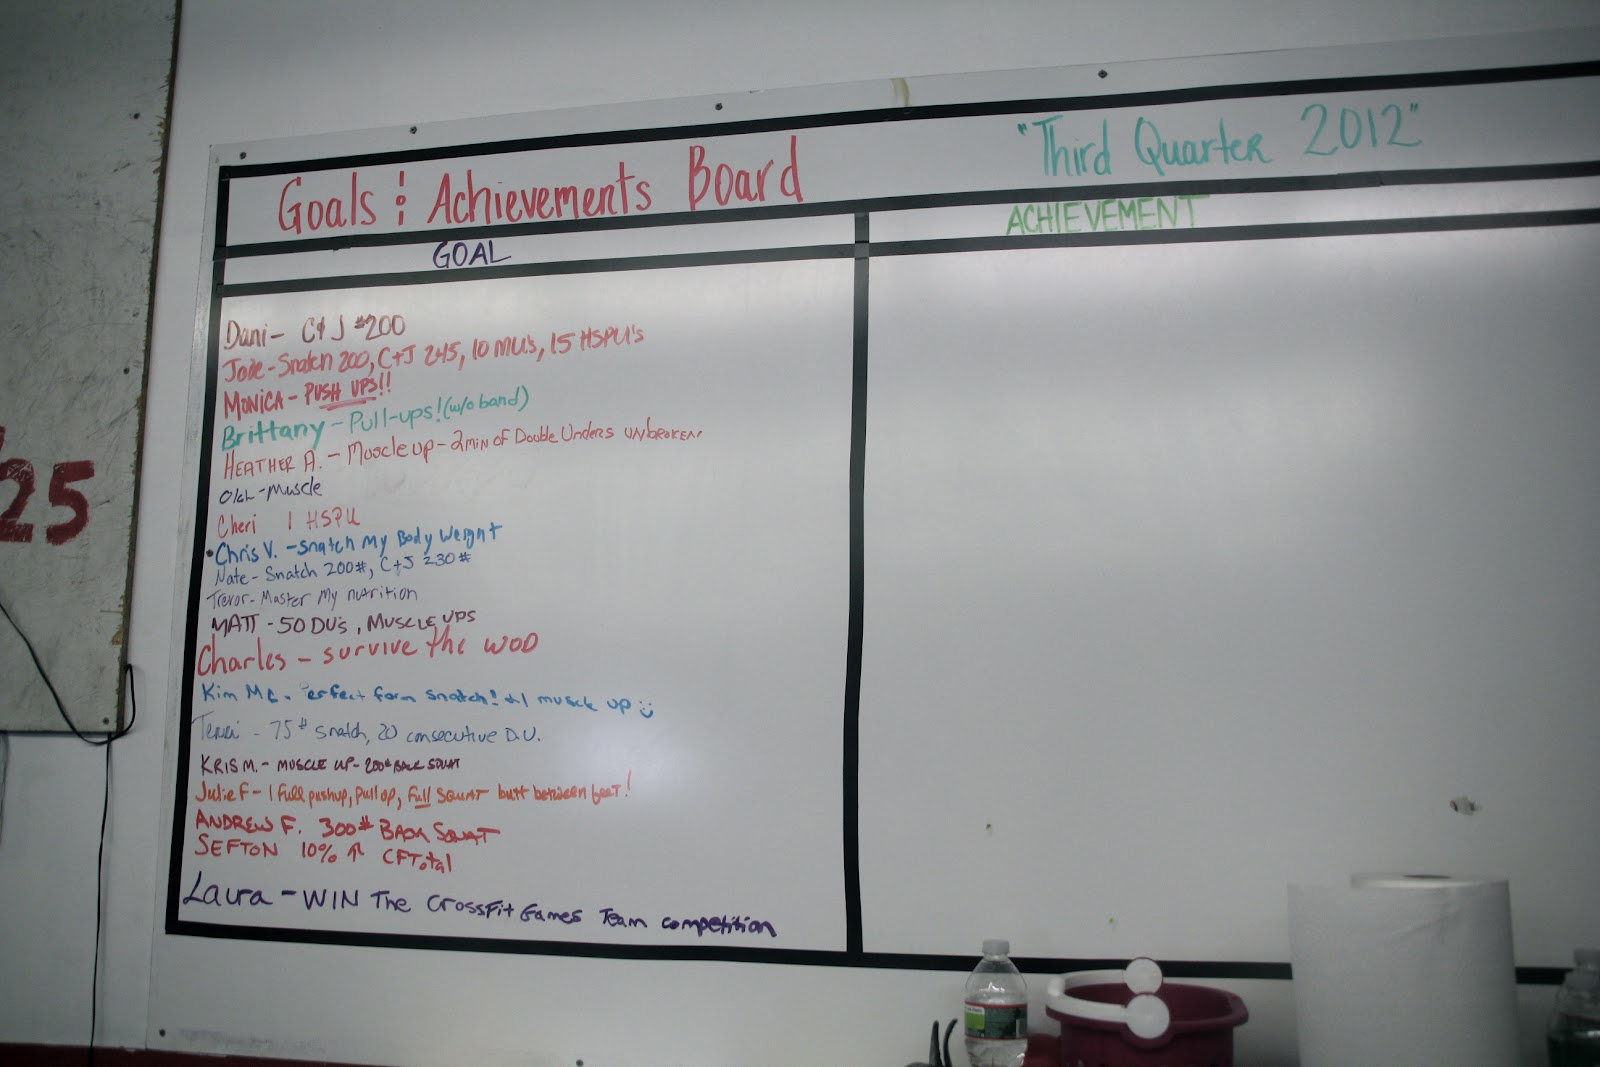 Goals & Achievements Board
"Third Quarter 2012"
GOAL
ACHIEVEMENT
Dani - C+J #200
Jade - Snatch 200, C+J 245, 10 MU's, 15 HSPU's
MONICA - PUSH UPS!!
Brittany - Pull-ups! (w/o band)
HEATHER A. - Muscle up - 2 min of Double Unders UNBROKEN!
- Muscle
Cheri 1 HSPU
Chris V. - Snatch My Body Weight
Nate - Snatch 200#, C+J 230#
Trevor - Master My nutrition
MATT - 50 DU's, MUSCLE UPS
Charles - survive the WOD
Kim Mc - Perfect form snatch! +1 muscle up
Terri - 75# snatch, 20 consecutive D.U.
KRIS M. - MUSCLE UP - 200# BACK SQUAT
Julie F - 1 full pushup, pullup, full SQUAT butt between feet!
ANDREW F. 300# BACK SQUAT
SEFTON 10% ↑ CFTotal
Laura - WIN The CrossFit Games Team competition
25